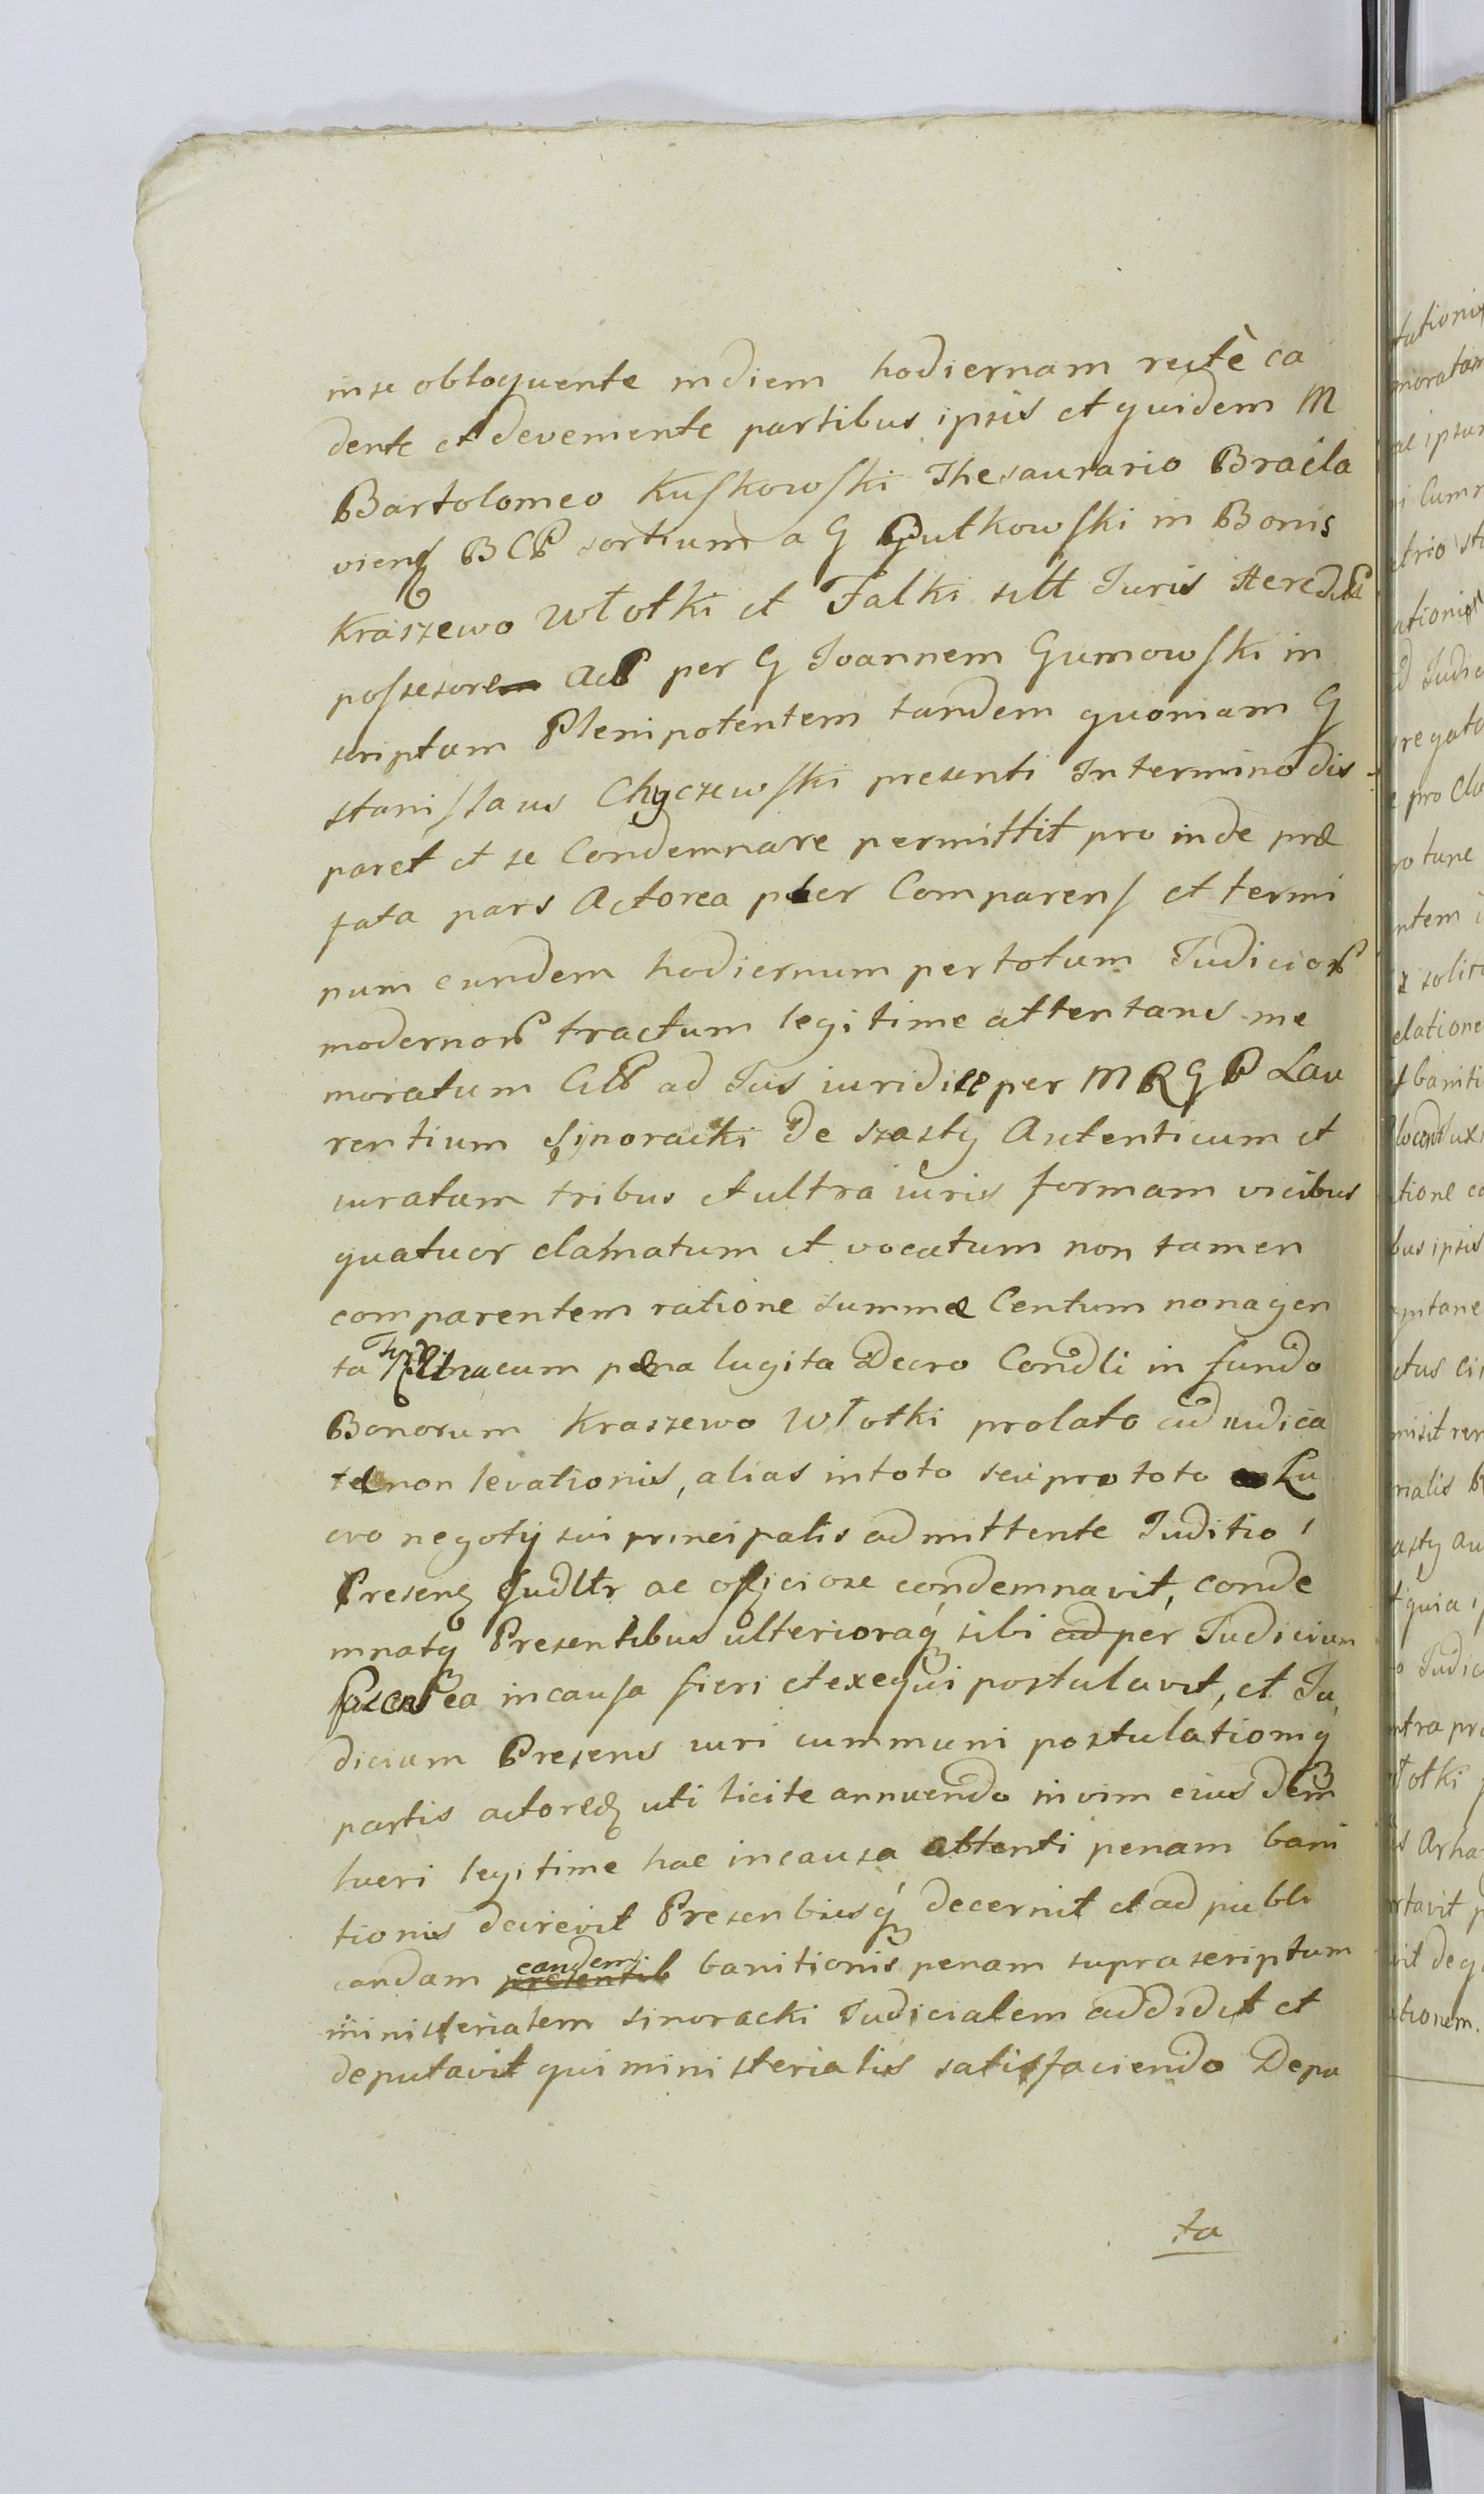 in se obloquente in diem hodiernam rectè ca
dente et devemente partibus ipsis et quidem M
Bartolomeo Kuskowski Thesaurario Bracla
viens BCP sortium a G Gutkowski in Bonis
Kraszewo Włotki et Falki sitt Juris Hered
possesore Act per G Joannem Gumowski in
scriptum Plenipotentem tandem quoniam G
stanislaus Chyczewski presenti In termino dis
paret et se Condemnare permittit pro inde præ
fata pars Actorea pter Comparens et termi
num eundem hodiernum per totum Judicior
modernor tractum legitime attentans me
moratum Citt ad Jus iuridice per MRGP Lau
rentium Sinoracki De szasty Autenticum et
iuratum tribus et ultra iuris formam vicibus
quatuor clamatum et vocatum non tamen
comparentem ratione summæ Centum nonagen
ta cum pæna lugita Decro Condli in fundo
Bonorum Kraszewo Włotki prolato adiudica
tæ non levationis, alias in toto seu pro toto Lu
cro negotij sui principalis admittente Juditio
Presens Judltr ac officiose condemnavit, conde
mnatq Presentibus ulterioraq sibi per Judicium
ea in causa fieri et exequi postulavit, et Ju
dicium Presens iuri cummuni postulationiq
partis actoreæ uti licite annuendo in vim eiusdem
lucri legitime hac in causa attenti penam bani
tionis decrevit Presenbiusq decernit et ad publi
candam eandem banitionis penam suprascriptum
ministerialem sinoracki Judicialem addidit et
deputavit qui ministerialis satisfaciendo Depu
ta